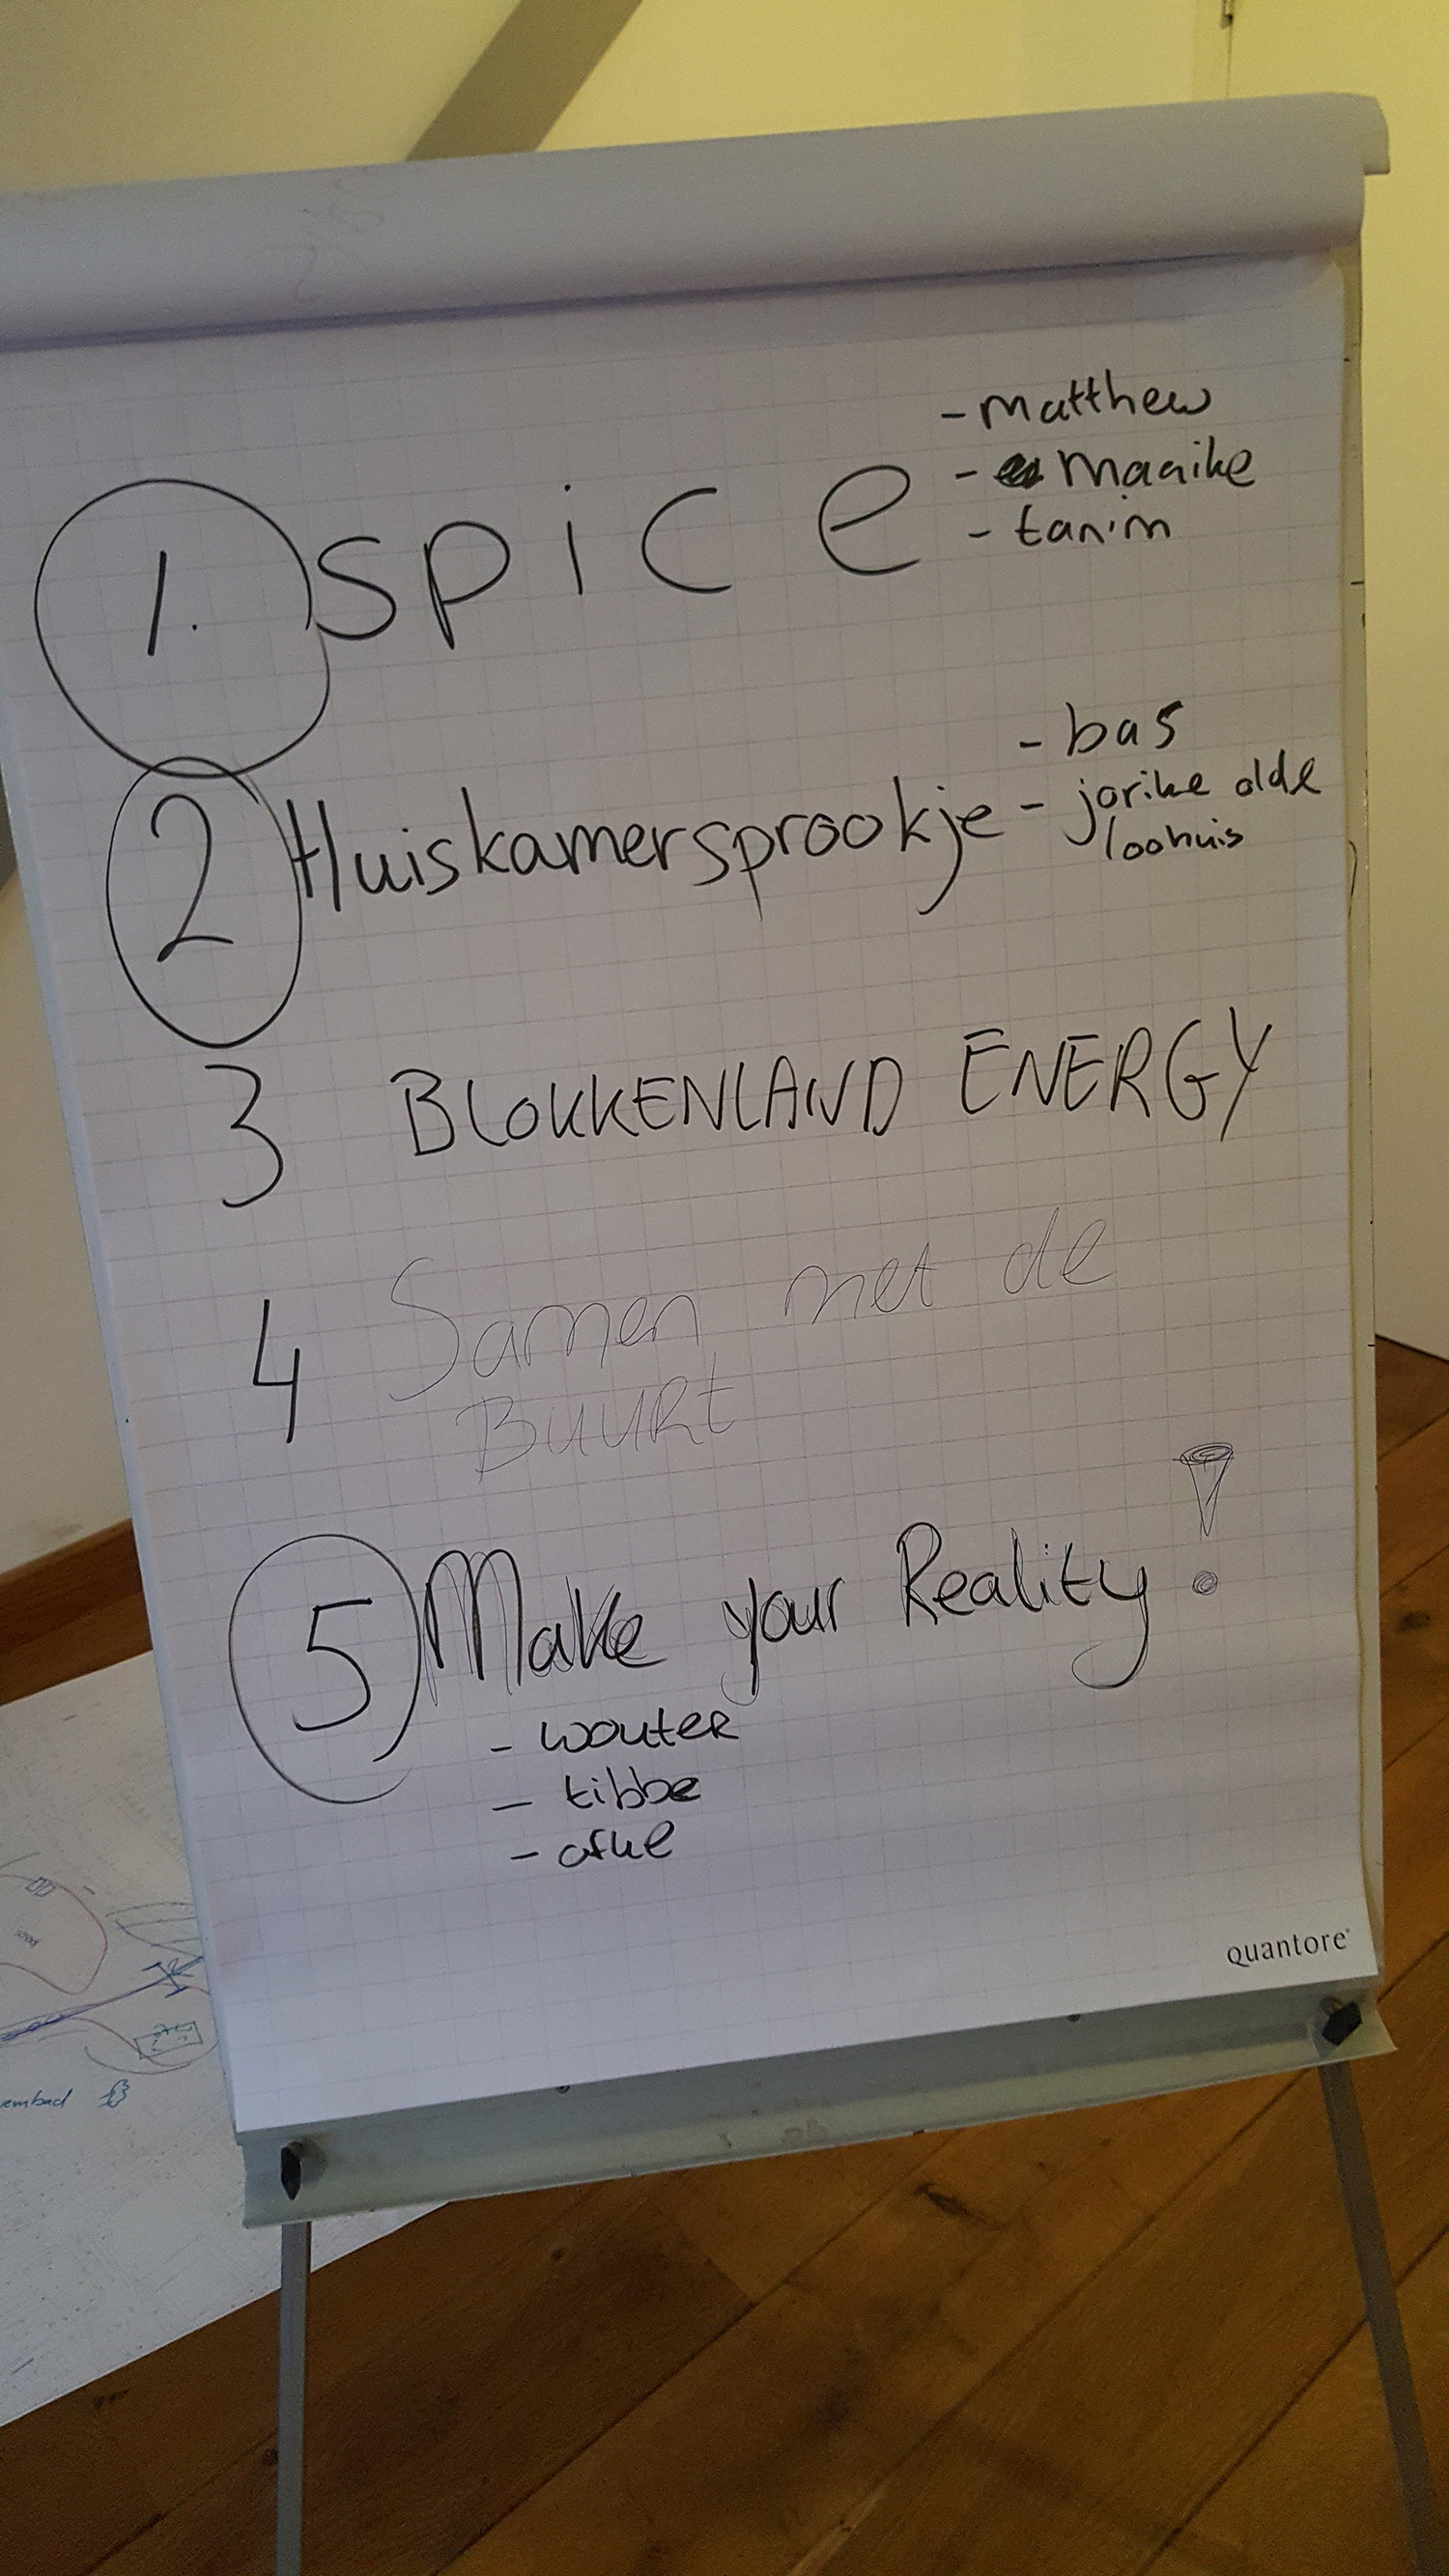 - matthew
- maaike
- tanim
1. spice
- bas
2 Huiskamersprookje - jorike olde
loohuis
3 BLOKKENLAND ENERGY
4 Samen met de
BUURt
5 Make your Reality!
- wouter
- tibbe
- afke
quantore
embad